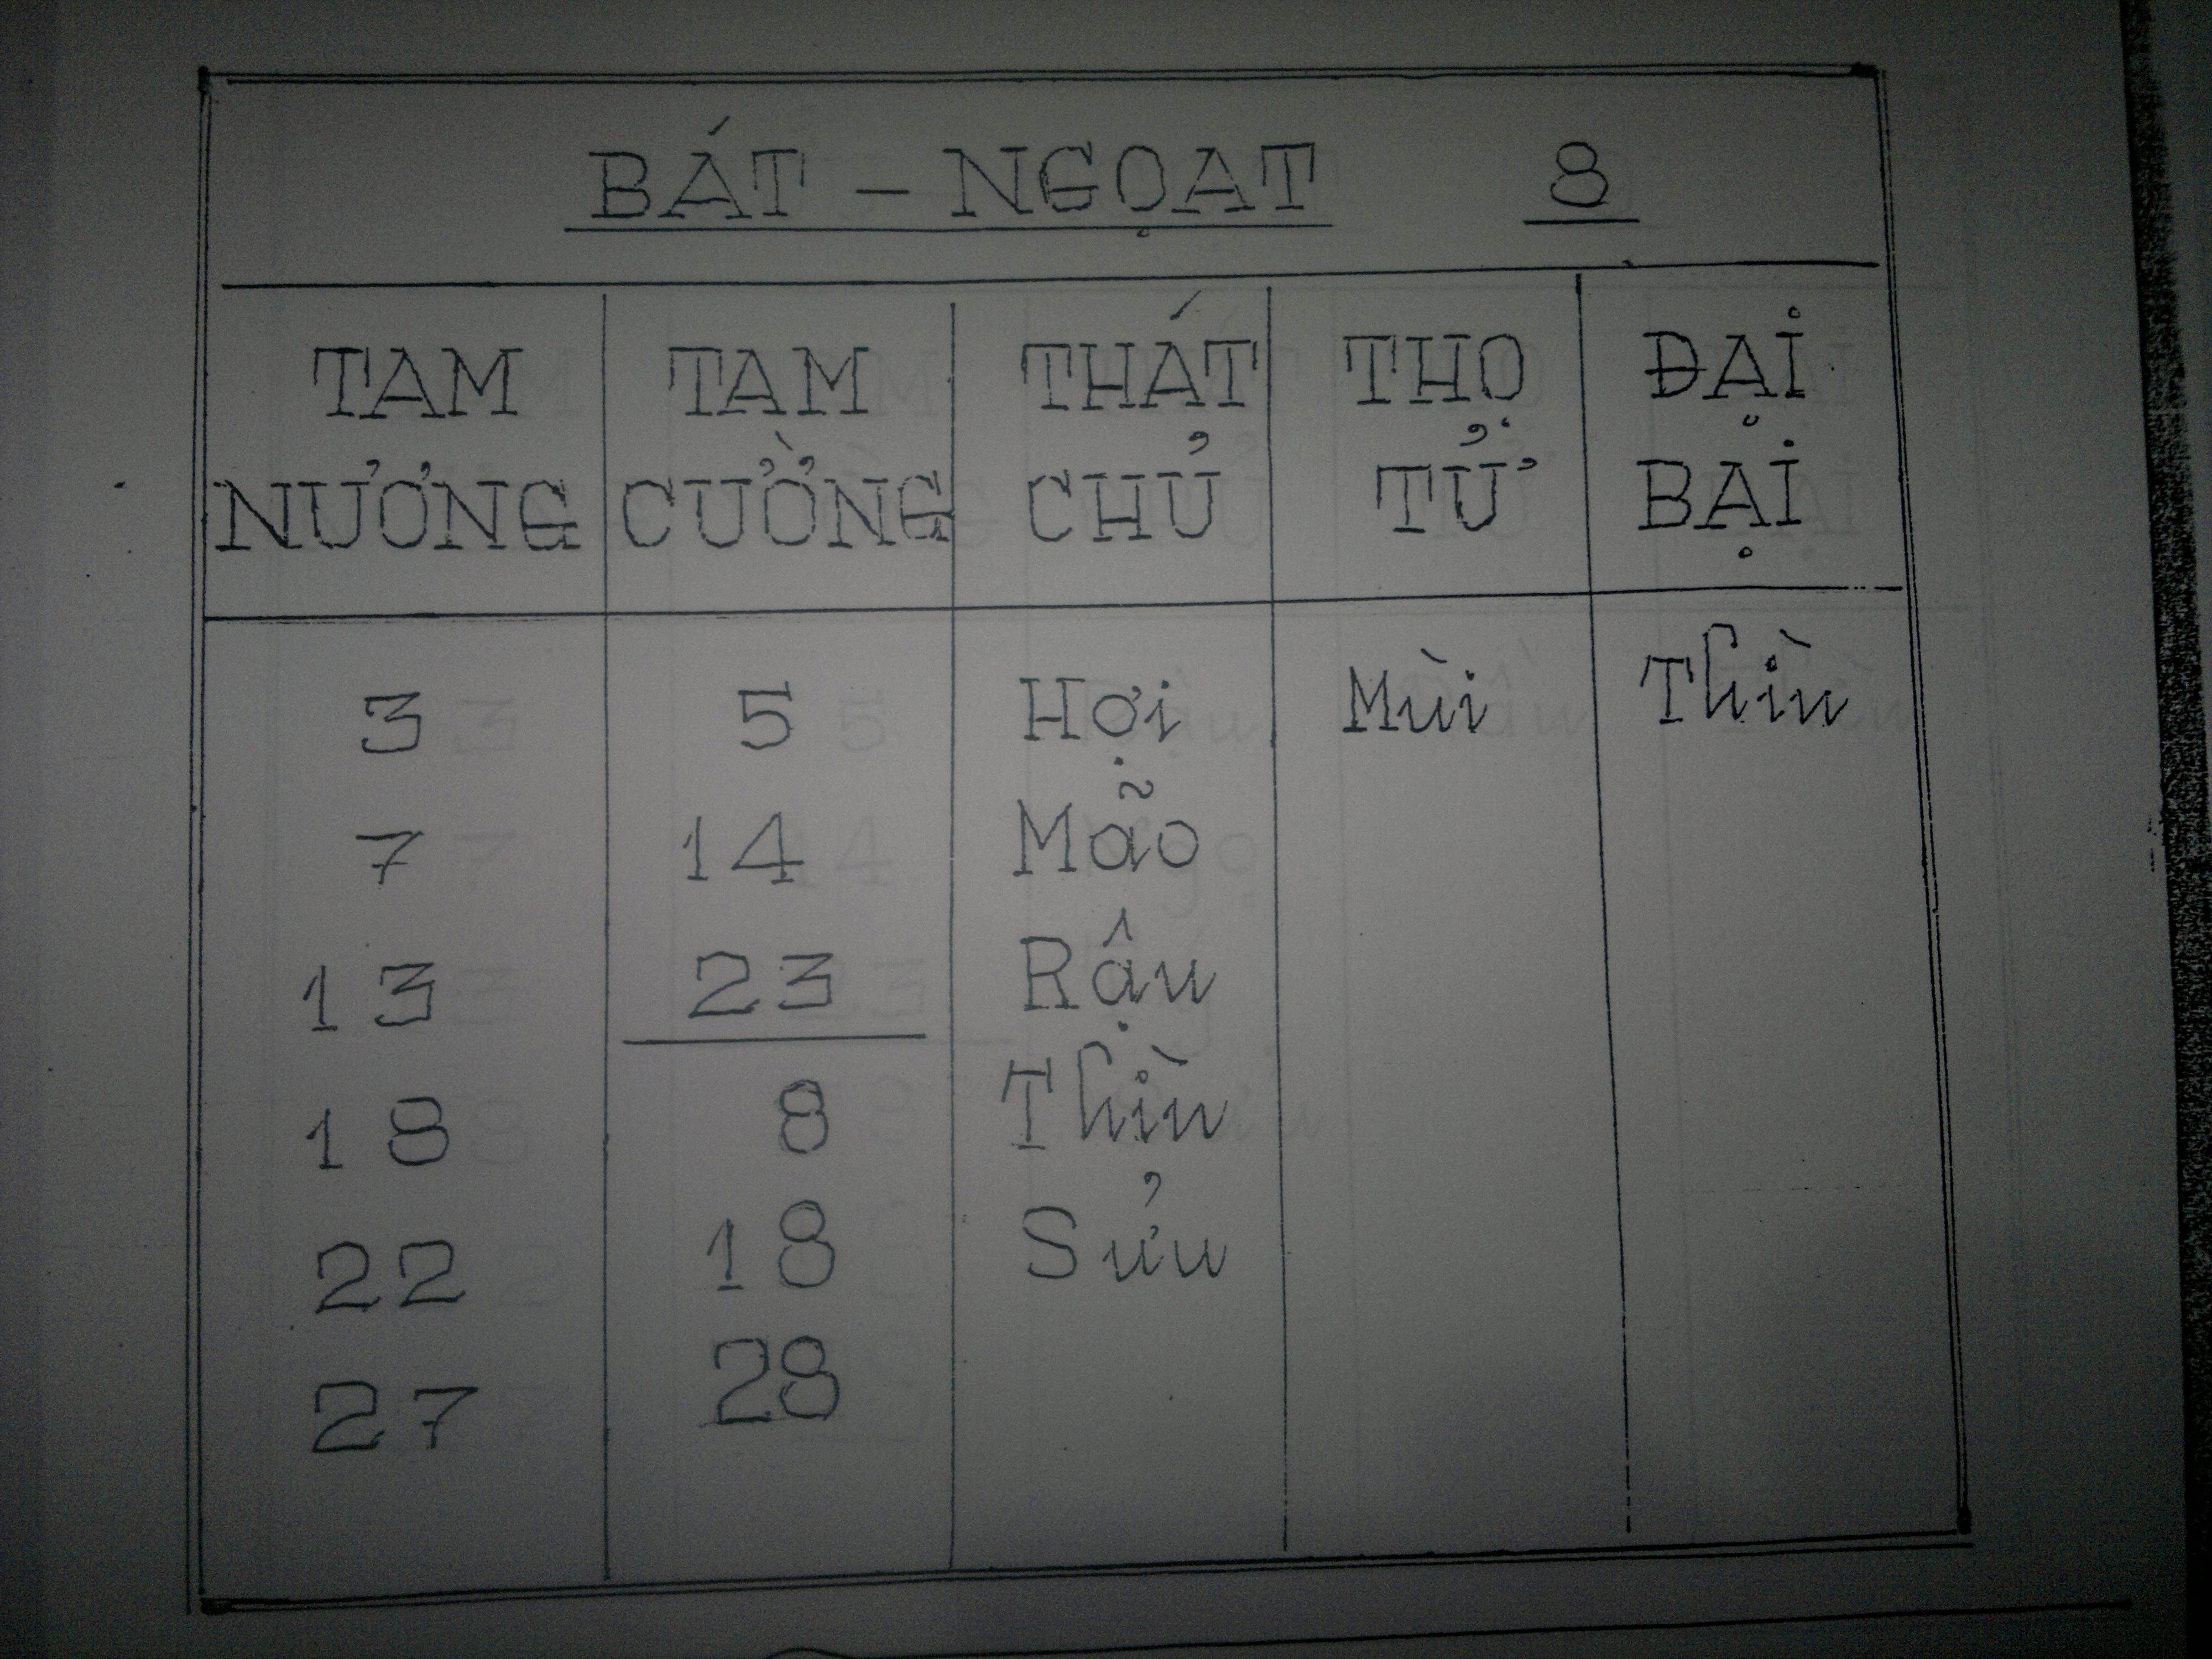 BÁT - NGỌAT 8
TAM NƯƠNG TAM CƯỜNG THÁT CHỦ THỌ TỬ ĐẠI BẠI
3 5 Hợi Mùi Thìn
7 14 Mảo
13 23 Rậu
18 8 Thìn
22 18 Sửu
27 28